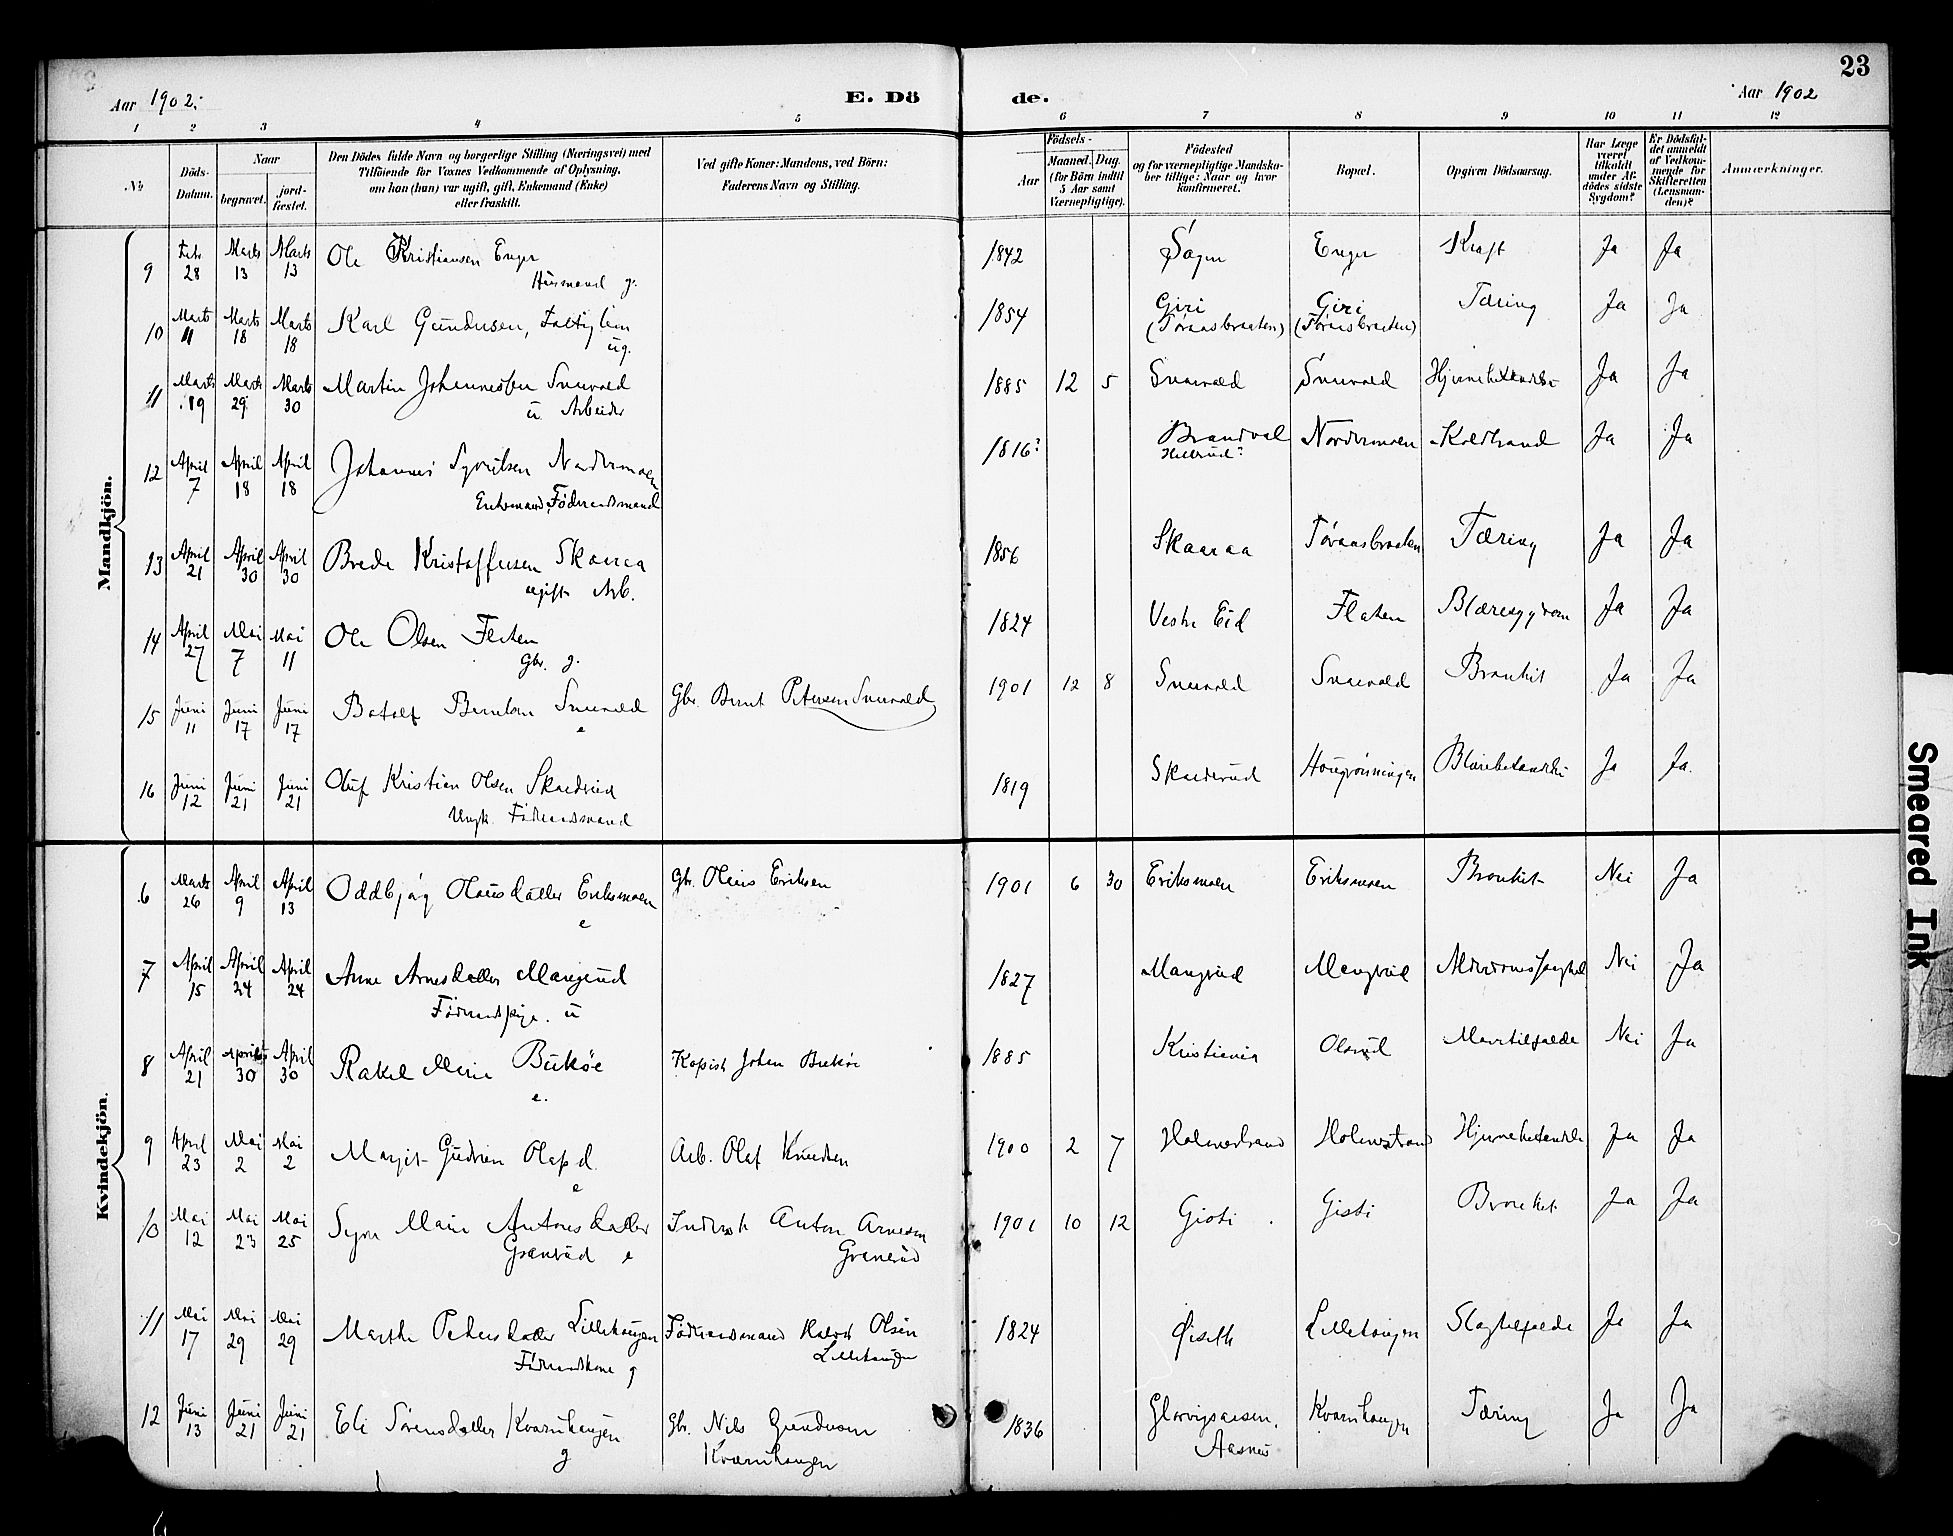 23
Aar 1902.
E. Dö
de.
Aar 1902
1 2 3 4 5 6 7 8 9 10 11 12
№
Döds-
Datum.
Naar
begravet.
jord-
fæstet.
Den Dödes fulde Navn og borgerlige Stilling (Næringsvei) med
Tilföiende for Voxnes Vedkommende af Oplysning,
om han (hun) var ugift, gift, Enkemand (Enke)
eller fraskilt.
Ved gifte Koner: Mandens, ved Börn:
Faderens Navn og Stilling.
Födsels-
Aar
Maaned. Dag.
(for Börn indtil
5 Aar samt
Værnepligtige).
Födested
og for værnepligtige Mandska-
ber tillige: Naar og hvor
konfirmeret.
Bopæl.
Opgiven Dödsaarsag.
Har Læge
været
tilkaldt
under Af-
dödes sidste
Sygdom?
Er Dödsfal-
det anmeldt
af Vedkom-
mende for
Skifteretten
(Lensman-
den)?
Anmærkninger.
Mandkjön.
9 Febr 28 Marts 13 Marts 13 Ole Kristiansen Enger 1842 Enger Kræft Ja Ja
Husmand g.
10 Marts 11 Marts 18 Marts 18 Karl Gundersen, Fattiglem 1854 Giri Giri Tæring Ja Ja
ug. (Tøraasbraaten) (Tøraasbraaten)
11 Marts 19 Marts 29 Marts 30 Martin Johannessen Snurvold 1885 12 5 Snurvold Snurvold Hjernebetændelse Ja Ja
u. Arbeider
12 April 7 April 18 April 18 Johannes Syvertsen Nordermoen 1816? Brandval Nordermoen Koldbrand Ja Ja
Enkemand, Føderaadsmand
13 April 21 April 30 April 30 Brede Kristoffersen Skaaraa 1856 Skaaraa Tøraasbraaten Tæring Ja Ja
ugift Arb.
14 April 27 Mai 7 Mai 11 Ole Olsen Flaten 1824 Vestre Eid Flaten Blæresygdom Ja Ja
Gbr. g.
15 Juni 11 Juni 17 Juni 17 Botolf Berntsen Snurvold Gbr. Bernt Petersen Snurvold 1901 12 8 Snurvold Snurvold Bronkit Ja Ja
e
16 Juni 12 Juni 21 Juni 21 Oluf Kristian Olsen Skaderud 1819 Skaderud Blærebetændelse Ja Ja.
Føderaadsmand
Kvindekjön.
6 Marts 26 April 9 April 13 Oddbjørg Olausdatter Eriksmoen Gbr. Olaus Eriksen 1901 6 30 Eriksmoen Eriksmoen Bronkit Nei Ja
e
7 April 15 April 24 April 24 Anne Arnesdatter Mangrud 1827 Mangrud Mangrud Alderdomssvaghed Nei Ja
Føderaadspige. u
8 April 21 April 30 April 30 Rakel Marie Bukøe Kopist Johan Bukøe 1885 Kristiania Olsrud Mavetilfælde Nei Ja
e.
9 April 23 Mai 2 Mai 2 Margit Gudrun Olafsd. Arb. Olaf Knudsen 1900 2 7 Holmestrand Holmestrand Hjernebetændelse Ja Ja
e
10 Mai 12 Mai 23 Mai 25 Signe Marie Antonsdatter Inderst Anton Arnesen 1901 10 12 Gisti Gisti Bronkit Ja Ja
Grønerud e Grønerud
11 Mai 17 Mai 29 Mai 29 Marthe Pedersdatter Lillehaugen Føderaadsmand Halvor Olsen 1824 Øiseth Lillehaugen Slagtilfælde Ja Ja
Føderaadskone g Lillehaugen
12 Juni 13 Juni 21 Juni 21 Eli Sørensdatter Kvarnhaugen Gbr. Nils Gundersen 1836 Kvarnhaugen Tæring Ja Ja
g Kvarnhaugen Aasnes
Smeared Ink